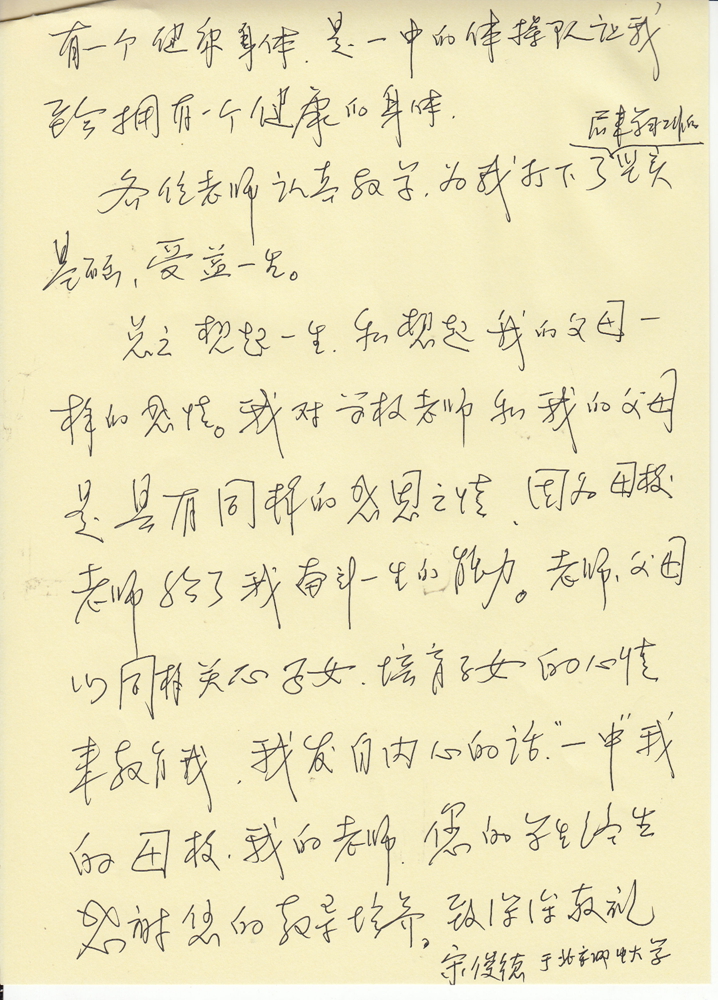 有一个健康身体,是一中的体操队让我
至今拥有一个健康的身体.
后来学习工作的
各位老师认真教学,为我打下了坚实
基础,受益一生。
总之想起一生,和想起我的父母一
样的感情。我对学校老师和我的父母
是具有同样的感恩之情,因为母校
老师给了我奋斗一生的能力。老师、父母
以同样关心子女,培育子女的心情
来教育我,我发自内心的话,"一中"我
的母校,我的老师,您的学生终生
感谢您的教导培养。致深深敬礼
宋俊德 于北京邮电大学